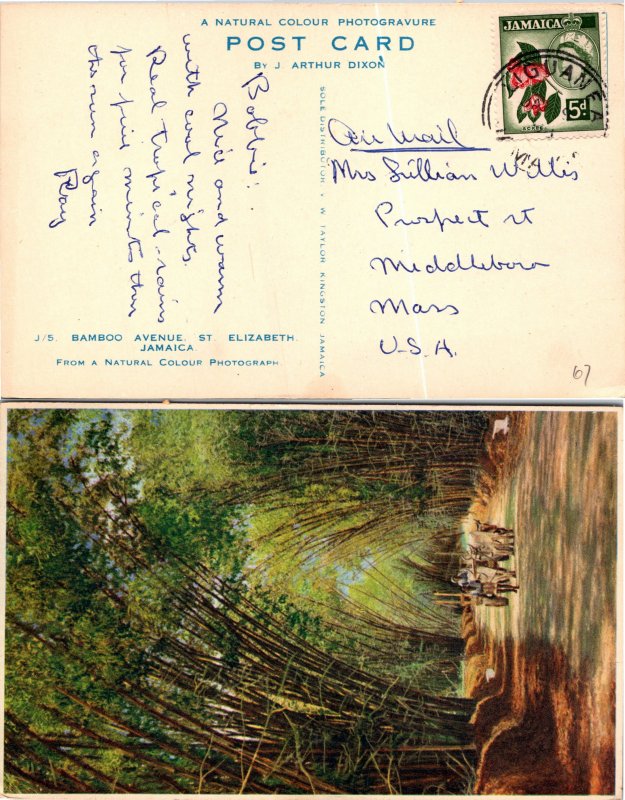 A NATURAL COLOUR PHOTOGRAVURE
POST CARD
BY J. ARTHUR DIXON
JAMAICA
5d.
ACKEE
LIGUANEA
Bobbie:
Nice and warm
with cool nights.
Real tropical rains
for five minutes then
the sun again
Ray
SOLE DISTRIBUTOR V. W. TAYLOR KINGSTON JAMAICA
Air Mail
Mrs Lillian Willis
Prospect st
Middleboro
Mass
U.S.A.
J/5. BAMBOO AVENUE, ST. ELIZABETH.
JAMAICA
FROM A NATURAL COLOUR PHOTOGRAPH.
67